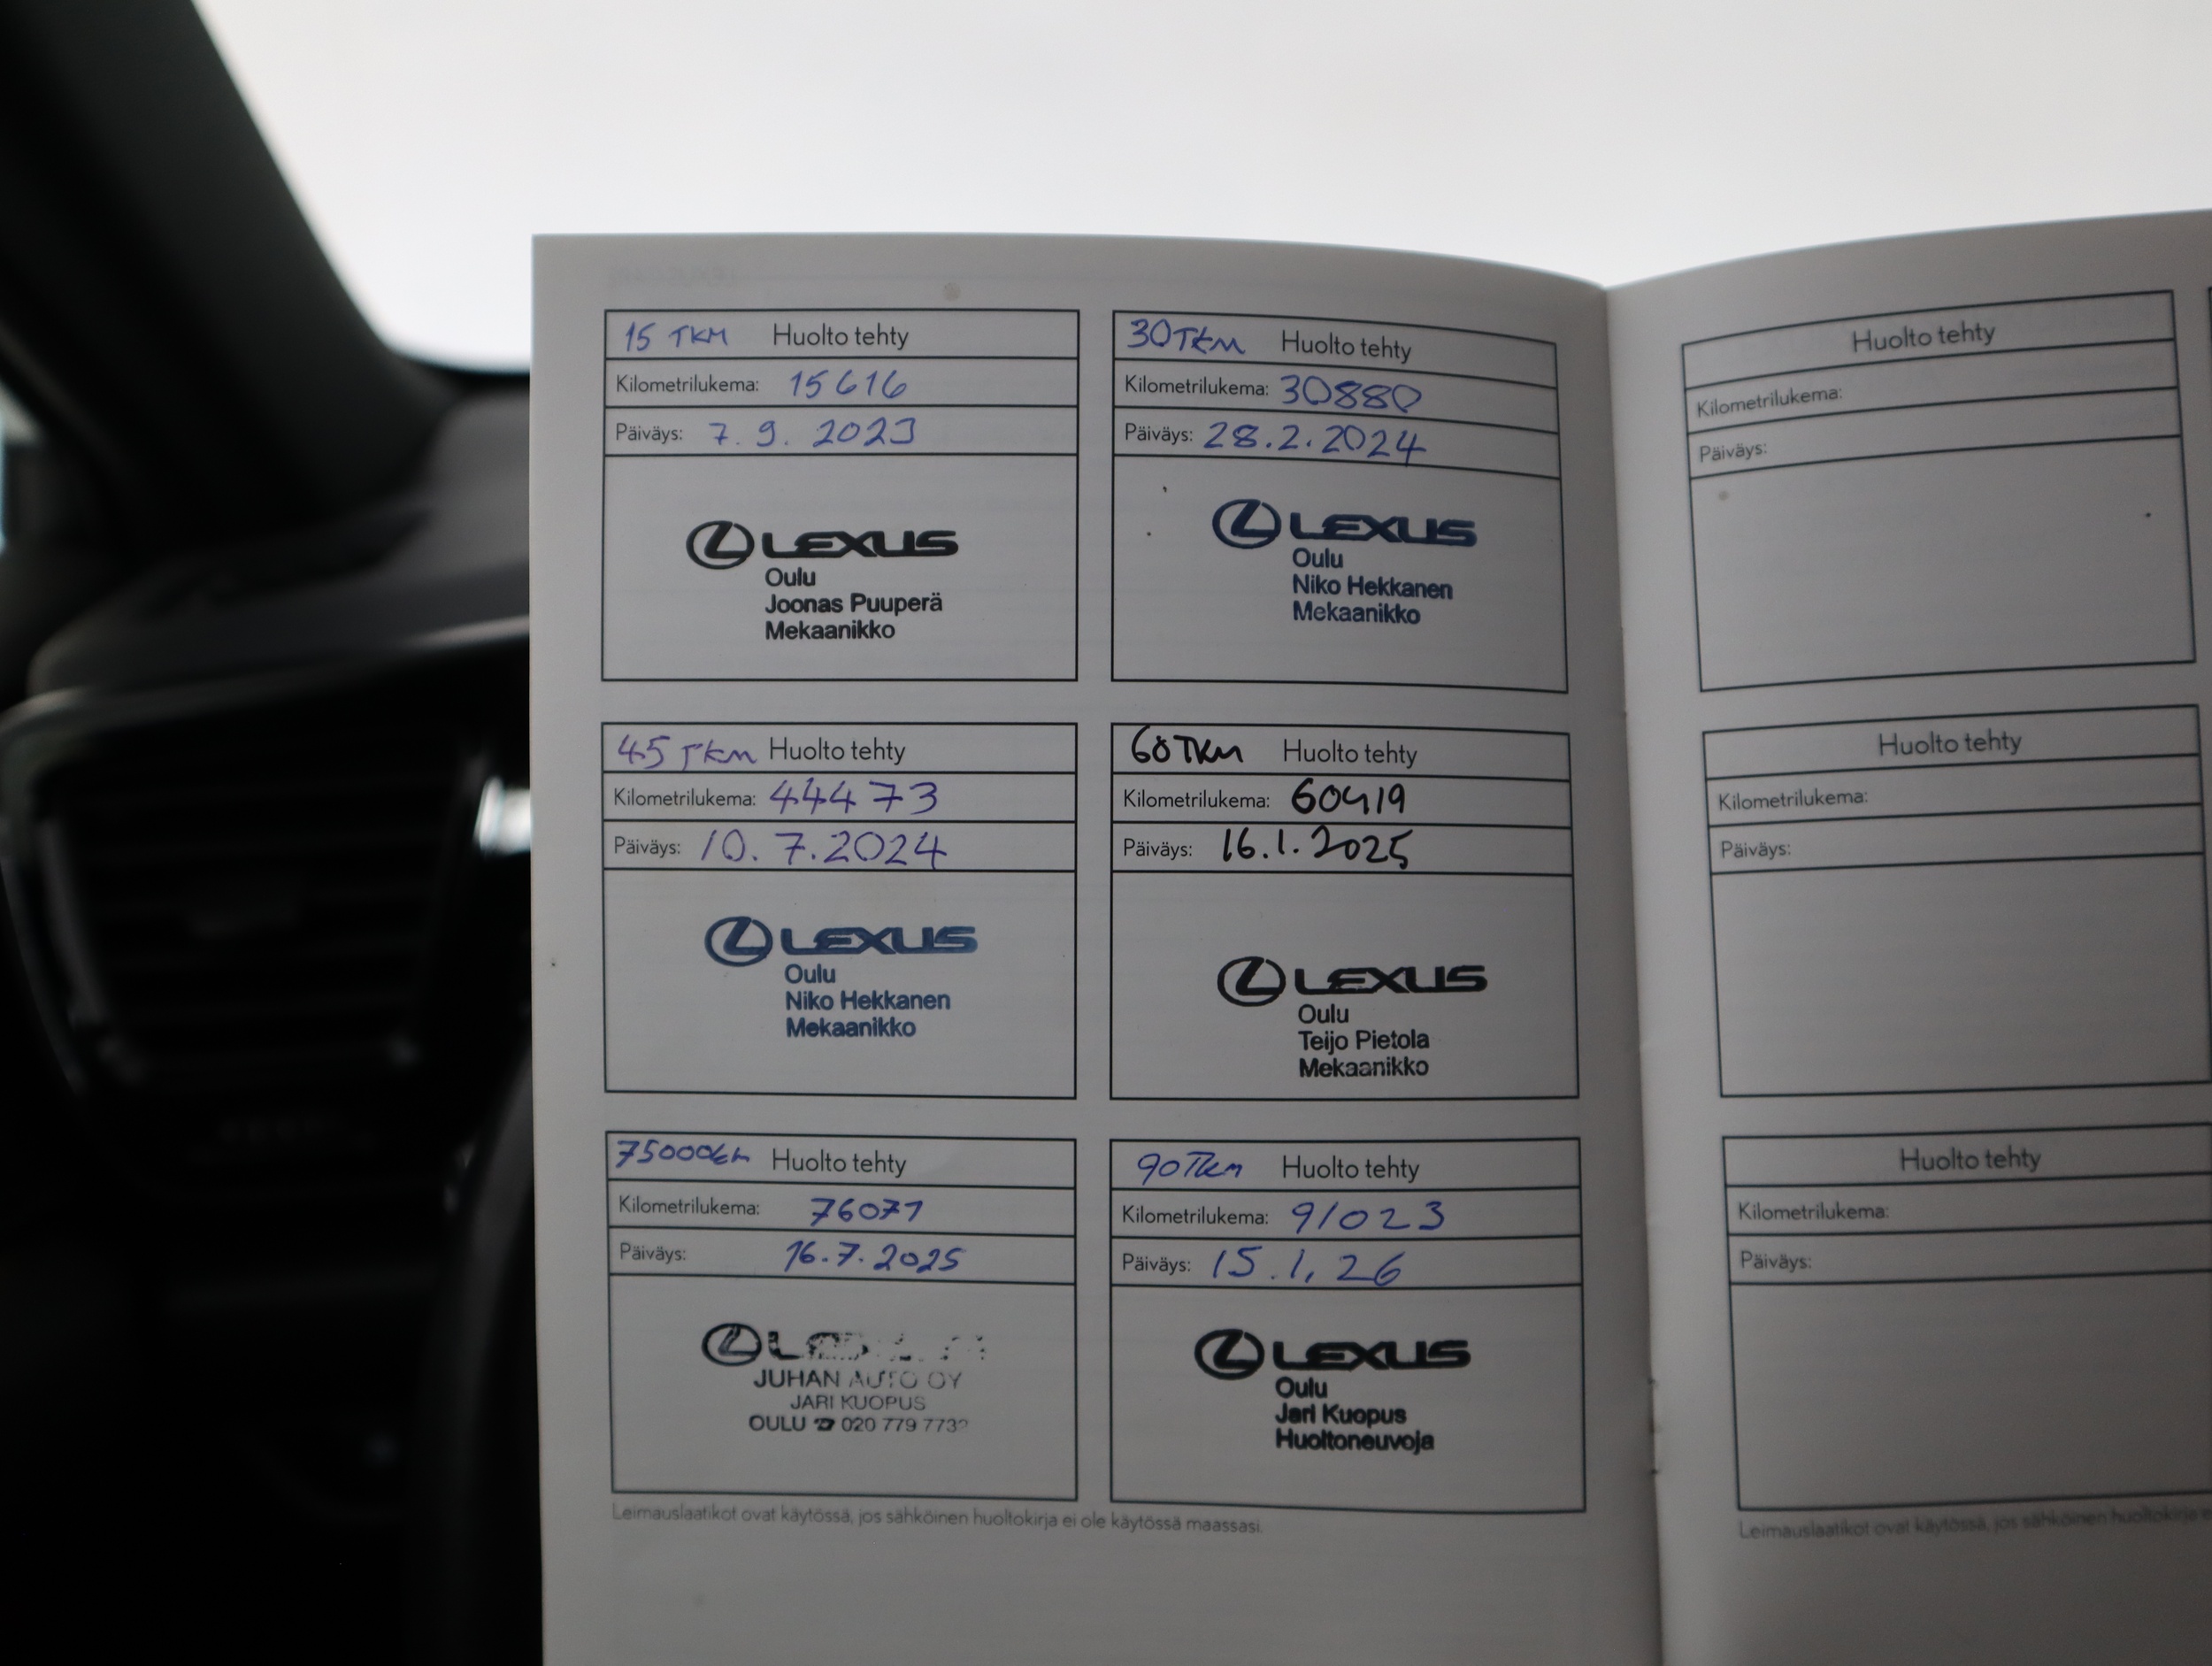 15 TKM Huolto tehty
Kilometrilukema: 15616
Päiväys: 7. 9. 2023
LEXUS
Oulu
Joonas Puuperä
Mekaanikko
30 TKM Huolto tehty
Kilometrilukema: 30880
Päiväys: 28.2.2024
LEXUS
Oulu
Niko Hekkanen
Mekaanikko
45 TKM Huolto tehty
Kilometrilukema: 44473
Päiväys: 10. 7.2024
LEXUS
Oulu
Niko Hekkanen
Mekaanikko
60 TKM Huolto tehty
Kilometrilukema: 60419
Päiväys: 16.1.2025
LEXUS
Oulu
Teijo Pietola
Mekaanikko
75000km Huolto tehty
Kilometrilukema: 76071
Päiväys: 16.7.2025
JUHAN AUTO OY
JARI KUOPUS
OULU ☎ 020 779 773
90 Tkm Huolto tehty
Kilometrilukema: 91023
Päiväys: 15.1.26
LEXUS
Oulu
Jari Kuopus
Huoltoneuvoja
Leimauslaatikot ovat käytössä, jos sähköinen huoltokirja ei ole käytössä maassasi.
Huolto tehty
Kilometrilukema:
Päiväys:
Huolto tehty
Kilometrilukema:
Päiväys:
Huolto tehty
Kilometrilukema:
Päiväys:
Leimauslaatikot ovat käytössä, jos sähköinen huoltokirja e